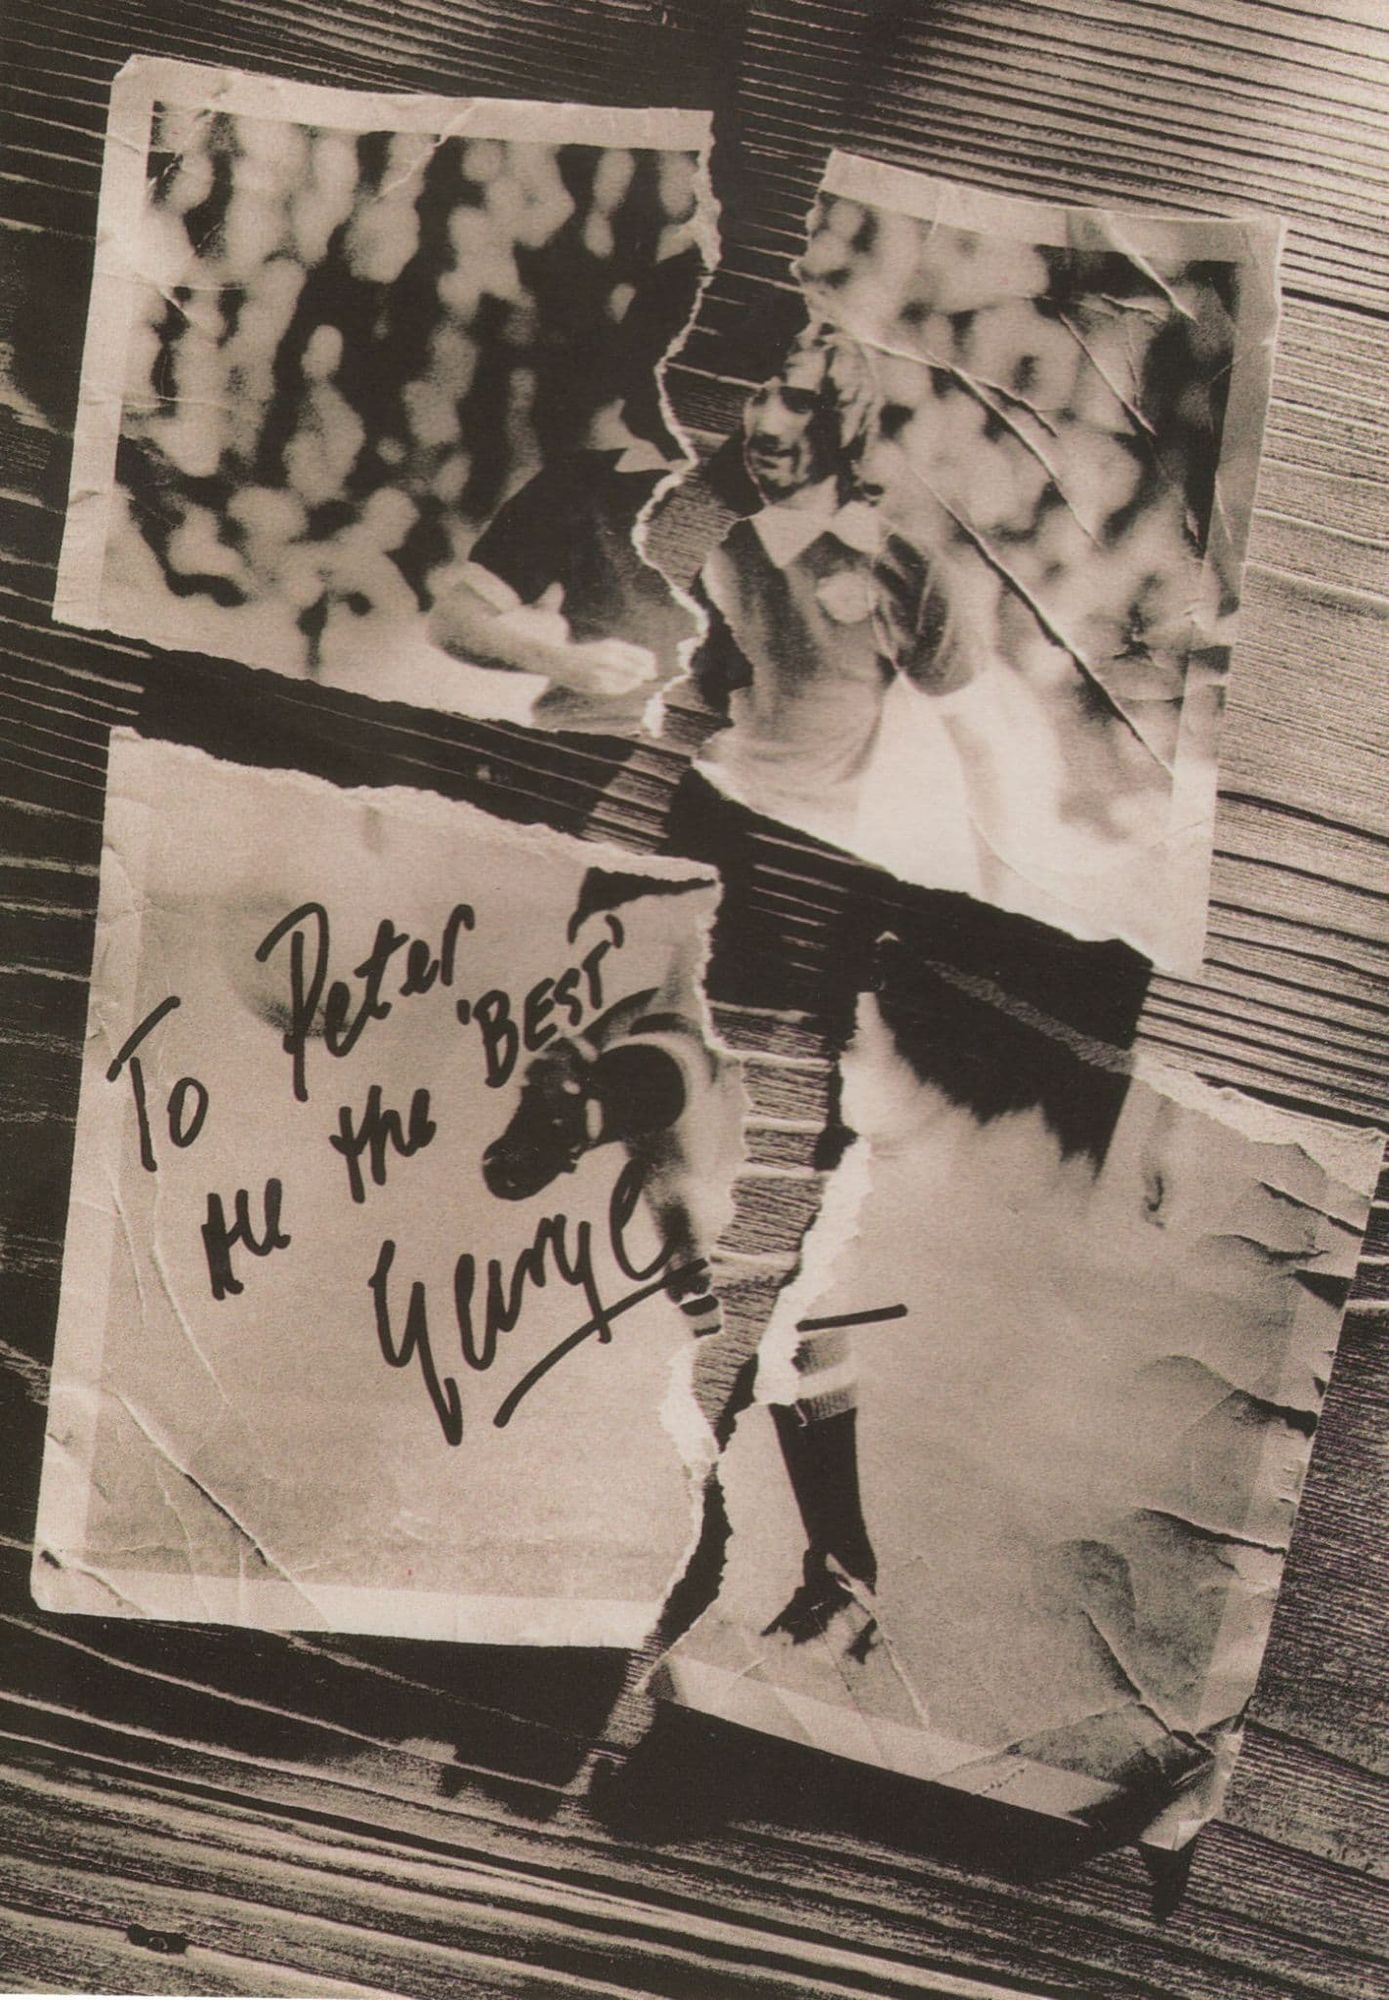 To Peter
All the 'BEST'
George